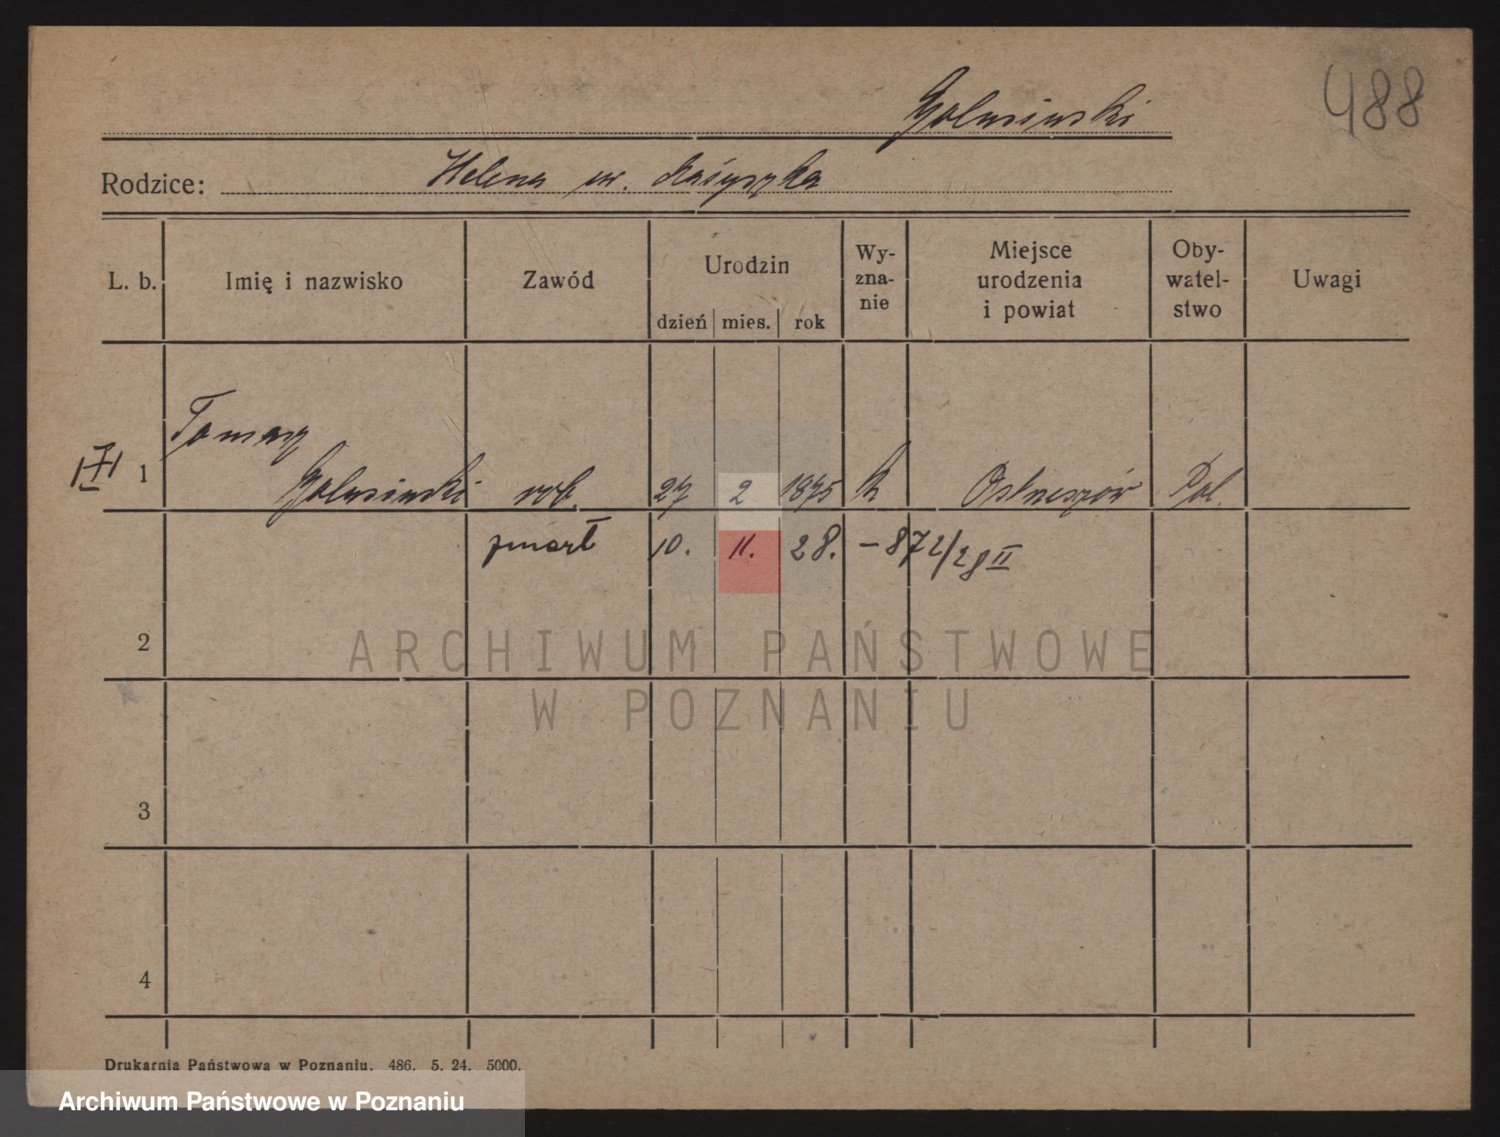 488
Golusinski
Rodzice: Helena w.
L. b. Imię i nazwisko Zawód Urodzin dzień mies. rok Wy-zna-nie Miejsce urodzenia i powiat Oby-watel-stwo Uwagi
Tomasz
1 Golusinski rob. 27 2 1875 k Ostrzeszów Pol.
zmarł 10. 11. 28. – 872/28 II
2
ARCHIWUM PAŃSTWOWE
W POZNANIU
3
4
Drukarnia Państwowa w Poznaniu. 486. 5. 24. 5000.
Archiwum Państwowe w Poznaniu